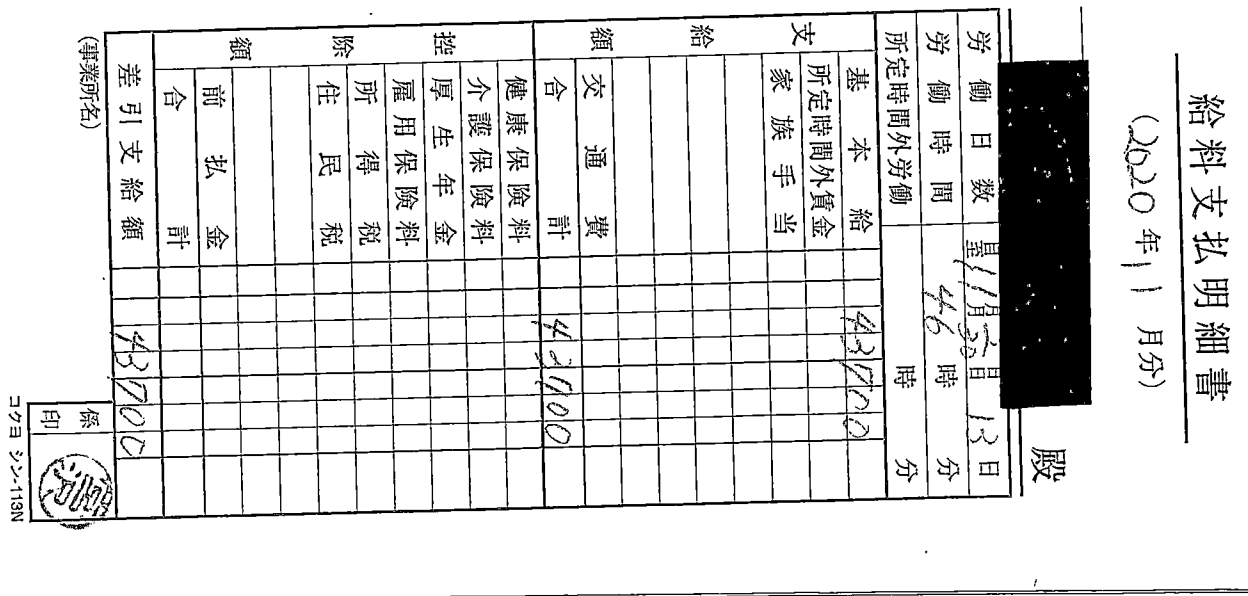 給料支払明細書
(2020年11月分)
殿
労働日数 13日
労働時間 46時 分
所定時間外労働 時 分
支給額
基本給 43700
所定時間外賃金
家族手当
交通費
合計 43700
控除額
健康保険料
介護保険料
厚生年金
雇用保険料
所得税
住民税
前払金
合計
差引支給額 43700
(事業所名)
係印
コクヨ シン-113N